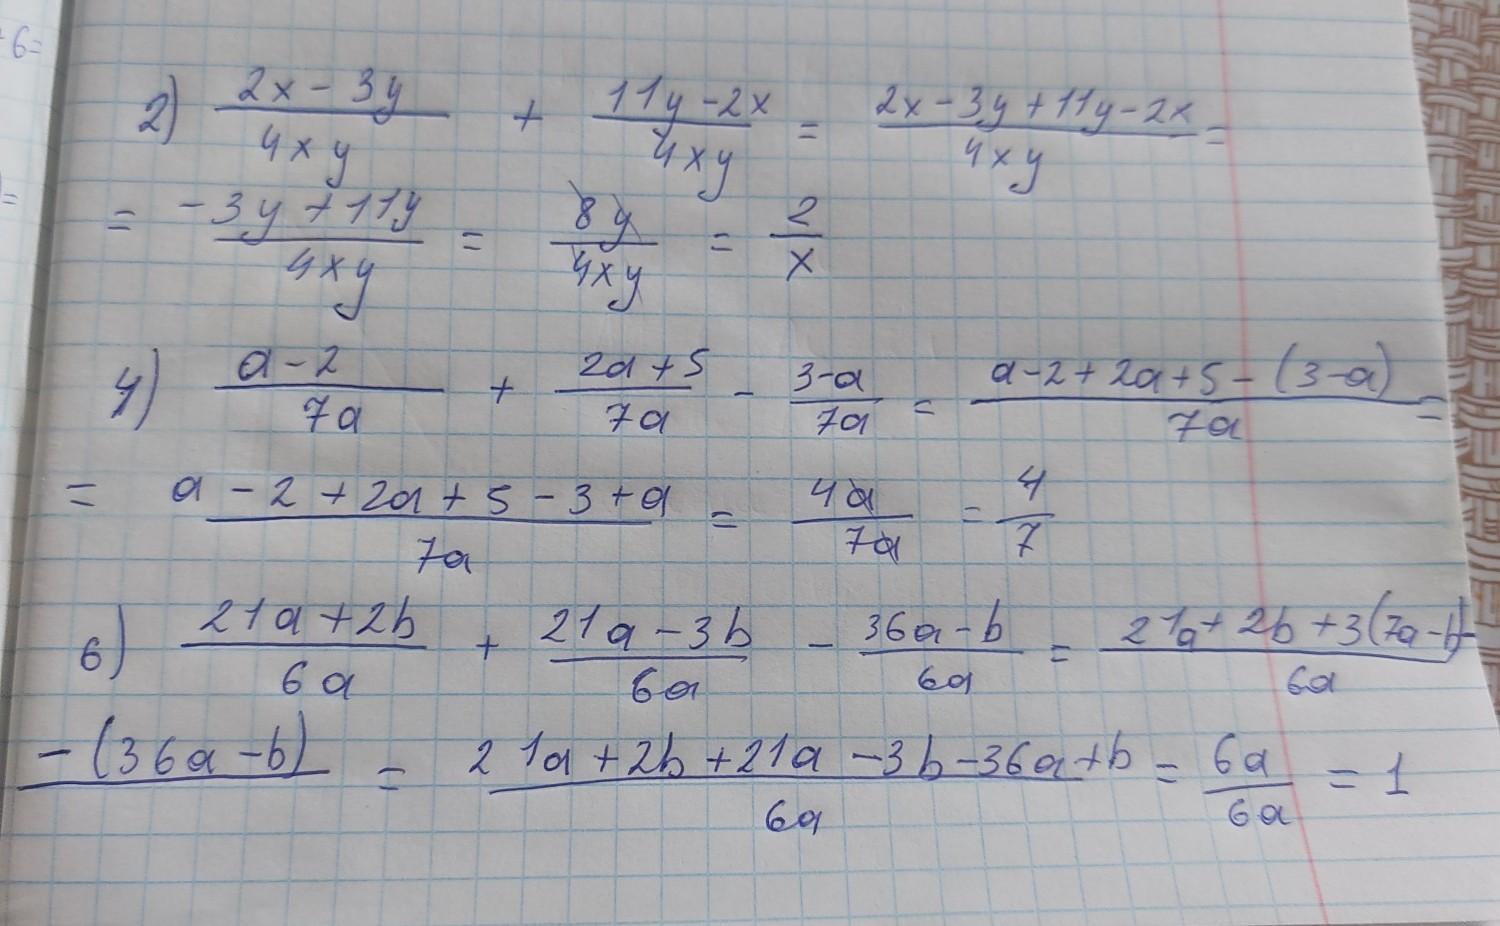 +6=
)=
2) (2x - 3y)/(4xy) + (11y - 2x)/(4xy) = (2x - 3y + 11y - 2x)/(4xy) =
= (-3y + 11y)/(4xy) = (8y)/(4xy) = 2/x
4) (a - 2)/(7a) + (2a + 5)/(7a) - (3 - a)/(7a) = (a - 2 + 2a + 5 - (3 - a))/(7a) =
= (a - 2 + 2a + 5 - 3 + a)/(7a) = (4a)/(7a) = 4/7
6) (21a + 2b)/(6a) + (21a - 3b)/(6a) - (36a - b)/(6a) = (21a + 2b + 3(7a - b) -)/(6a)
- (36a - b) = (21a + 2b + 21a - 3b - 36a + b)/(6a) = (6a)/(6a) = 1